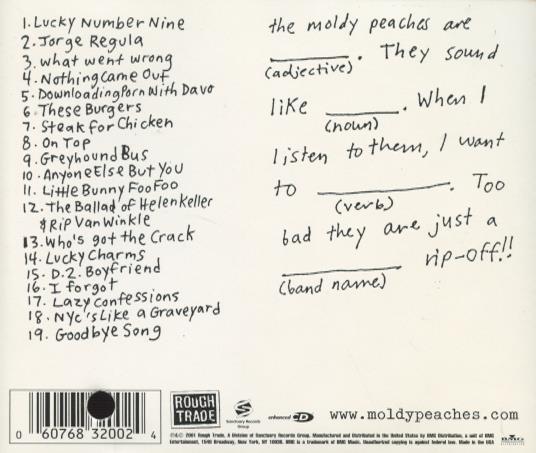 1. Lucky Number Nine
2. Jorge Regula
3. what went wrong
4. Nothing Came Out
5. Downloading Porn With Davo
6. These Burgers
7. Steak for Chicken
8. On Top
9. Greyhound Bus
10. Anyone Else But You
11. Little Bunny Foo Foo
12. The Ballad of Helen Keller
& Rip Van Winkle
13. Who's got the Crack
14. Lucky Charms
15. D.2. Boyfriend
16. I forgot
17. Lazy Confessions
18. NYC's Like a Graveyard
19. Goodbye Song
the moldy peaches are
________. They sound
(adjective)
like ________. When I
(noun)
listen to them, I want
to ________. Too
(verb)
bad they are just a
________ rip-off!!
(band name)
0 60768 32002 4
ROUGH TRADE
Sanctuary Records
Group
enhanced CD
www.moldypeaches.com
BMG
℗© 2001 Rough Trade, A Division of Sanctuary Records Group. Manufactured and Distributed in the United States by BMG Distribution, a unit of BMG
Entertainment, 1540 Broadway, New York, NY 10036. BMG is a trademark of BMG Music. Unauthorized copying is against federal law. Made in the USA